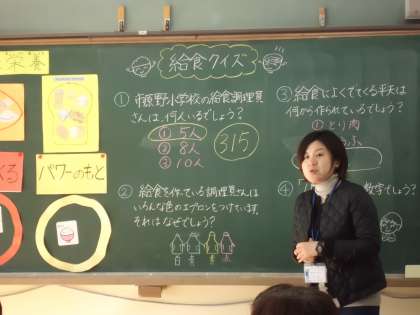 栄養
ぐろ
パワーのもと
給食クイズ
①市原野小学校の給食調理員
さんは、何人いるでしょう?
①5人
②8人
③10人
315
②給食を作っている調理員さんは
いろんな色のエプロンをつけています。
それはなぜでしょう?
白 青 赤
③給食によくでてくる平天は
何から作られているでしょう?
①とり肉
④
数字でしょう?